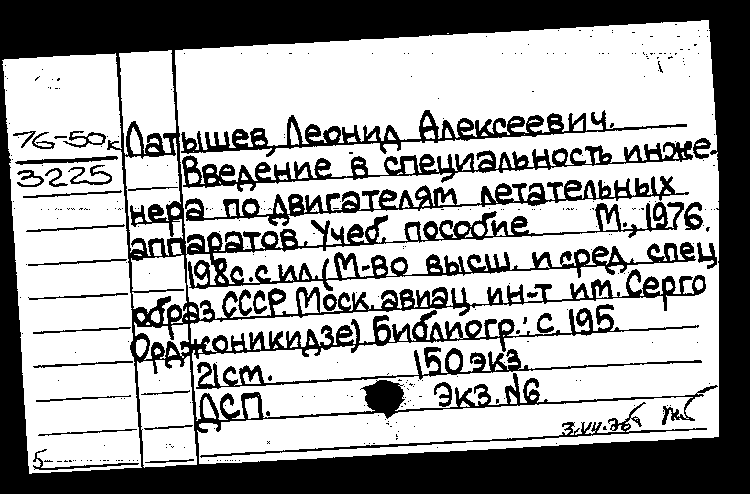 76-50к Латышев, Леонид Алексеевич.
3225 Введение в специальность инже-
нера по двигателям летательных
аппаратов. Учеб. пособие М., 1976.
198с. с ил. (М-во высш. и сред. спец.
образ. СССР. Моск. авиац. ин-т им. Серго
Орджоникидзе) Библиогр.: с. 195.
21 см. 150 экз.
ДСП. Экз. №6.
3.VII.76
5